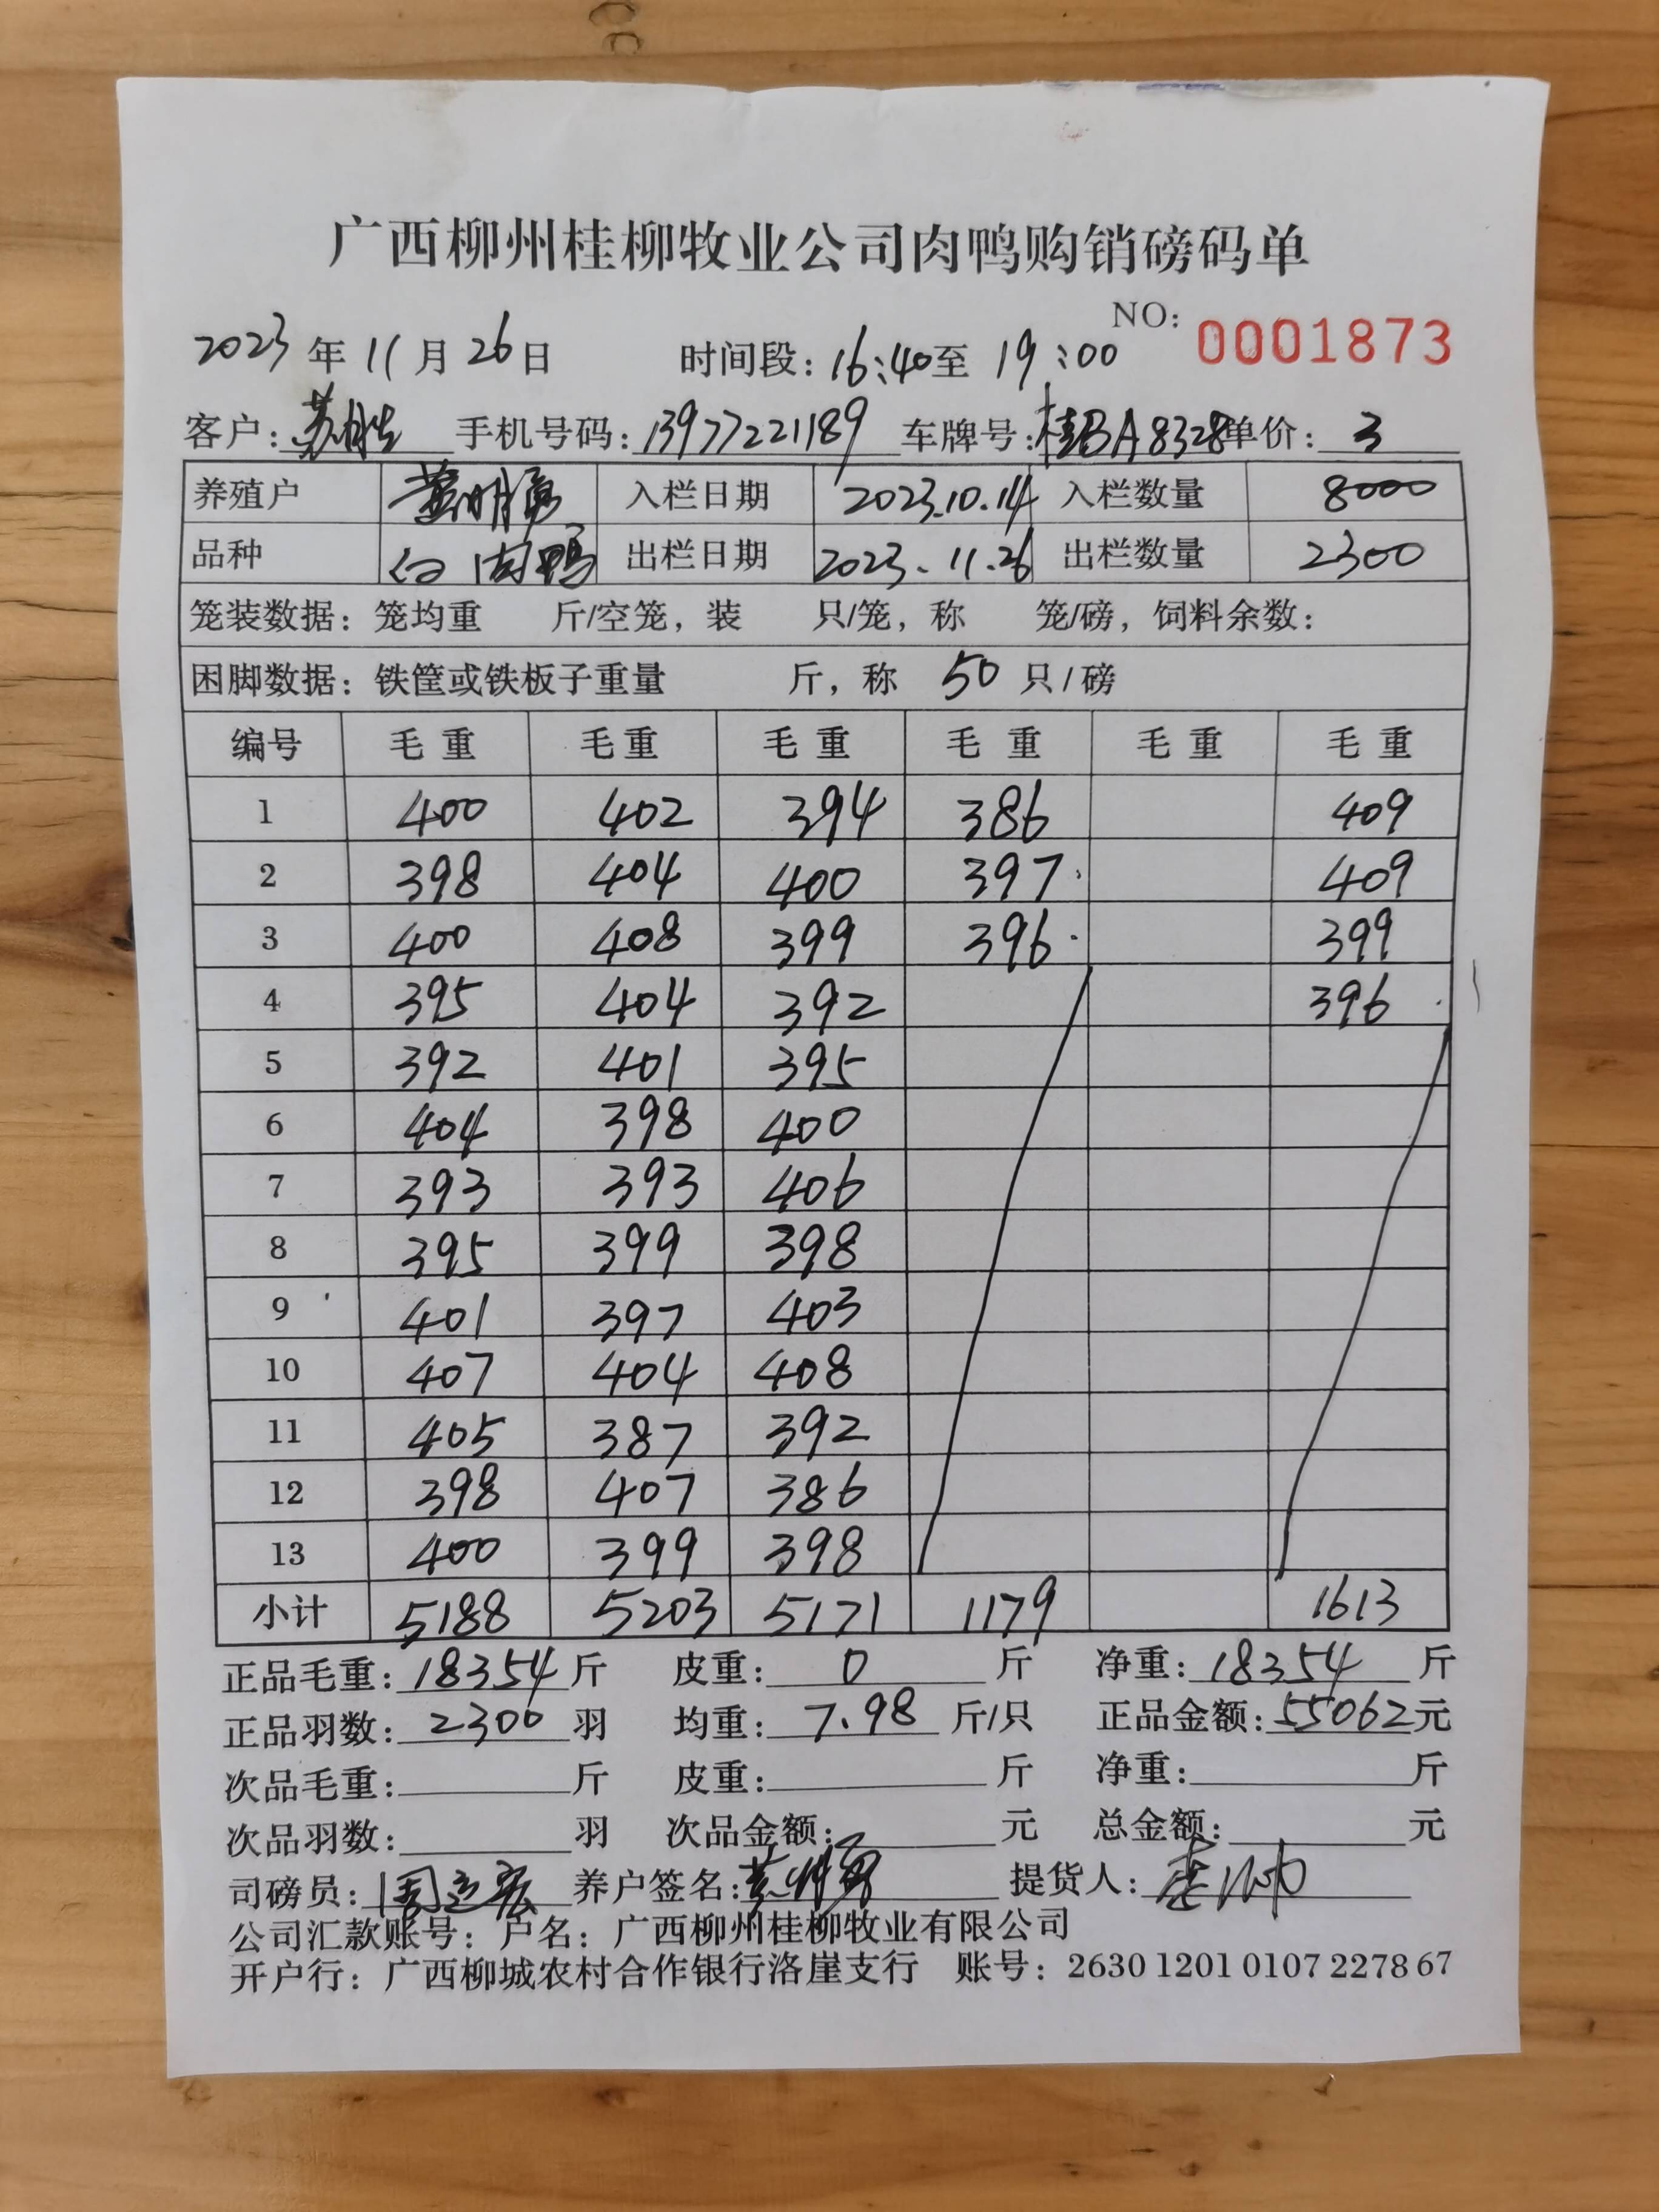 广西柳州桂柳牧业公司肉鸭购销磅码单
NO: 0001873
2023年11月26日 时间段:16:40至19:00
客户:苏胜 手机号码:13977221189 车牌号:桂BA8328 单价:3
养殖户 黄明 入栏日期 2023.10.14 入栏数量 8000
品种 白肉鸭 出栏日期 2023.11.26 出栏数量 2300
笼装数据:笼均重 斤/空笼,装 只/笼,称 笼/磅,饲料余数:
困脚数据:铁筐或铁板子重量 斤,称 50 只/磅
编号 毛重 毛重 毛重 毛重 毛重 毛重
1 400 402 394 386 409
2 398 404 400 397 409
3 400 408 399 396 399
4 395 404 392 396
5 392 401 395
6 404 398 400
7 393 393 406
8 395 399 398
9 401 397 403
10 407 404 408
11 405 387 392
12 398 407 386
13 400 399 398
小计 5188 5203 5171 1179 1613
正品毛重:18354斤 皮重:0斤 净重:18354斤
正品羽数:2300羽 均重:7.98斤/只 正品金额:55062元
次品毛重: 斤 皮重: 斤 净重: 斤
次品羽数: 羽 次品金额: 元 总金额: 元
司磅员:周立宏 养户签名: 提货人:
公司汇款账号:户名:广西柳州桂柳牧业有限公司
开户行:广西柳城农村合作银行洛崖支行 账号:2630 1201 0107 2278 67